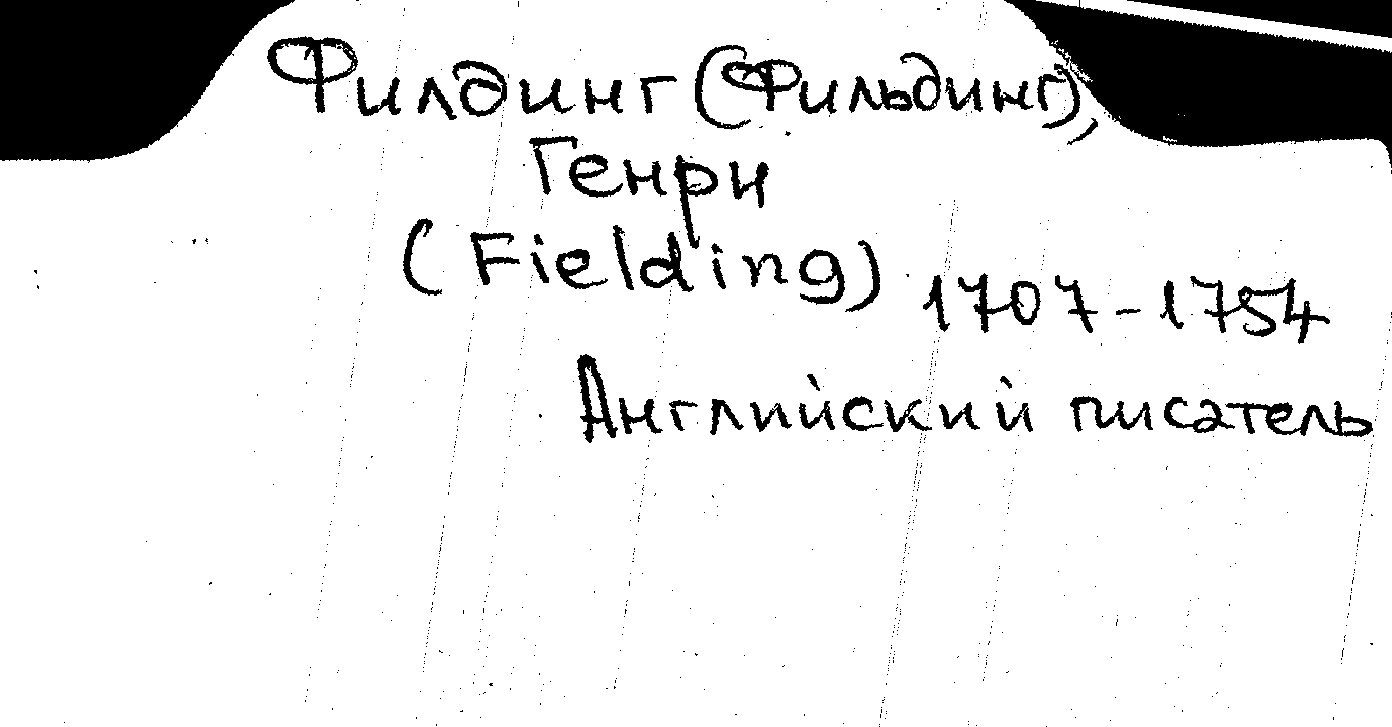 Филдинг (Фильдинг),
Генри
(Fielding) 1707-1754
Английский писатель